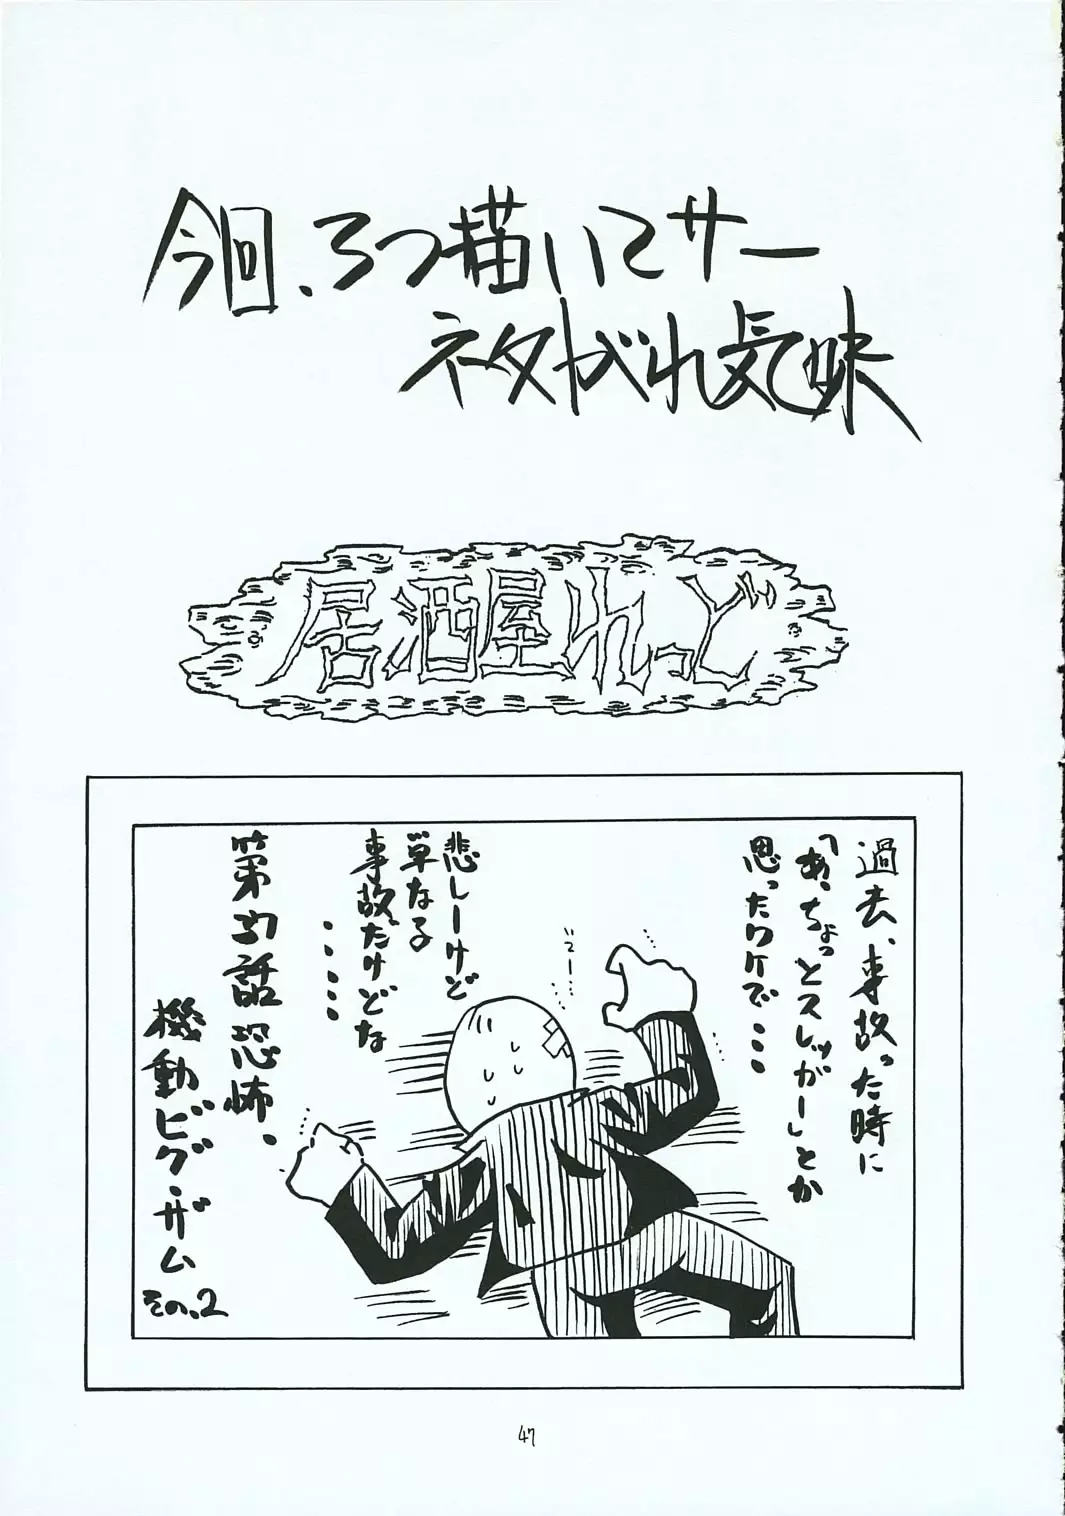 今回、3つ描いてサー
ネタがれ気味
居酒屋れっど
過去、事故った時に
「あ、ちょっとスレッガー」とか
思ったワケで…
ビーン…
悲しーけど
単なる
事故だけどな
……
第37話 恐怖、
機動ビグ・ザム
その、2
47